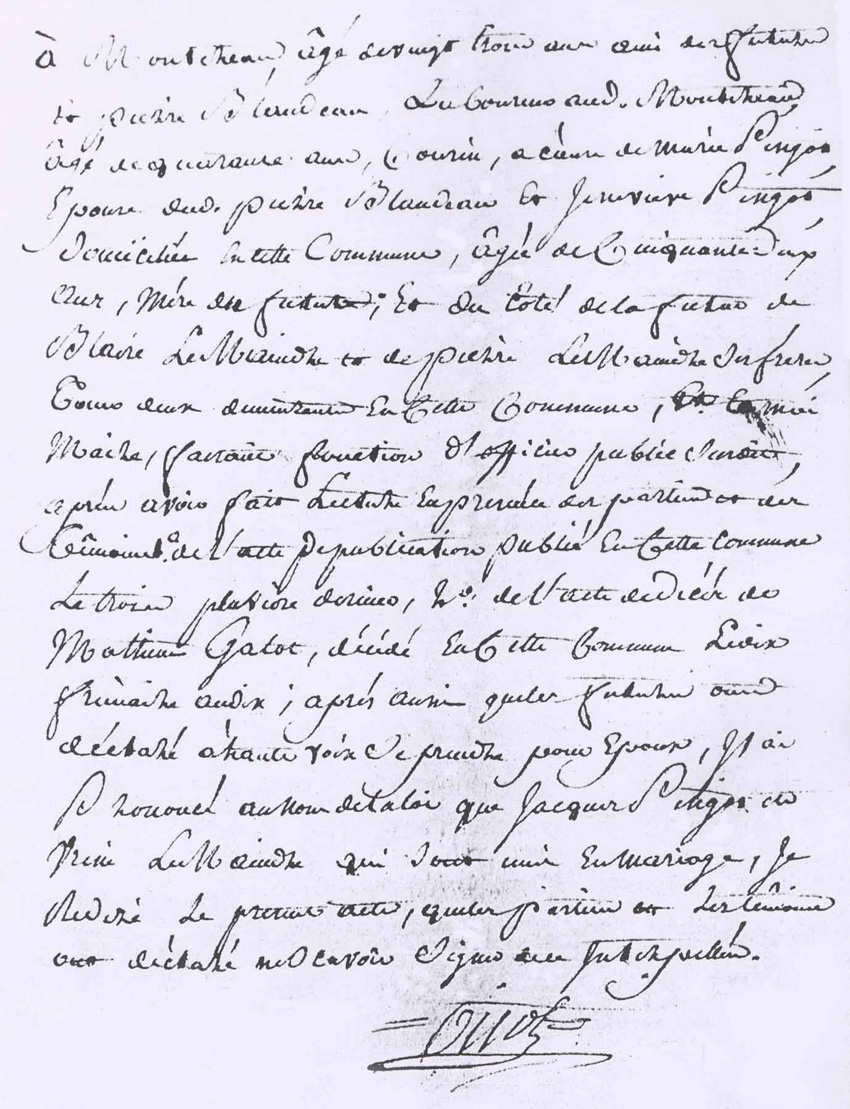 à Montcheau, âgé de vingt trois ans ami des futurs
et pierre Blandeau, Laboureur aud. Montcheau,
âgé de quarante ans, Cousin, a cause de marie Pingot
Epouse dud. pierre Blandeau Et Jenevieve Pingot,
domiciliée En cette Commune, âgée de Cinquante Sept
ans, Mére du futur; Et du Côté de la future de
Blaise LeMaindre et de pierre LeMaindre Ses freres,
tous deux demeurants En Cette Commune, Et moi
Maire, faisant fonction d'officier public Susdit,
aprés avoir fait Lecture En presence des parties et des
témoins, de l'acte de publication publié En Cette commune
Le trois pluviôse dernier, de l'acte de décés de
Mathieu Gatot, décédé En Cette Commune Le dix
frimaire an dix; aprés aussi que les futurs ont
déclaré à haute voix Se prendre pour Epoux, J'ai
Prononcé au Nom de la loi que Jacques Pingot et
LeMaindre qui Sont unis En mariage, Je
Redigé Le present acte, que les parties et Les témoins
ont déclaré ne Scavoir Signer de ce Interpellés.